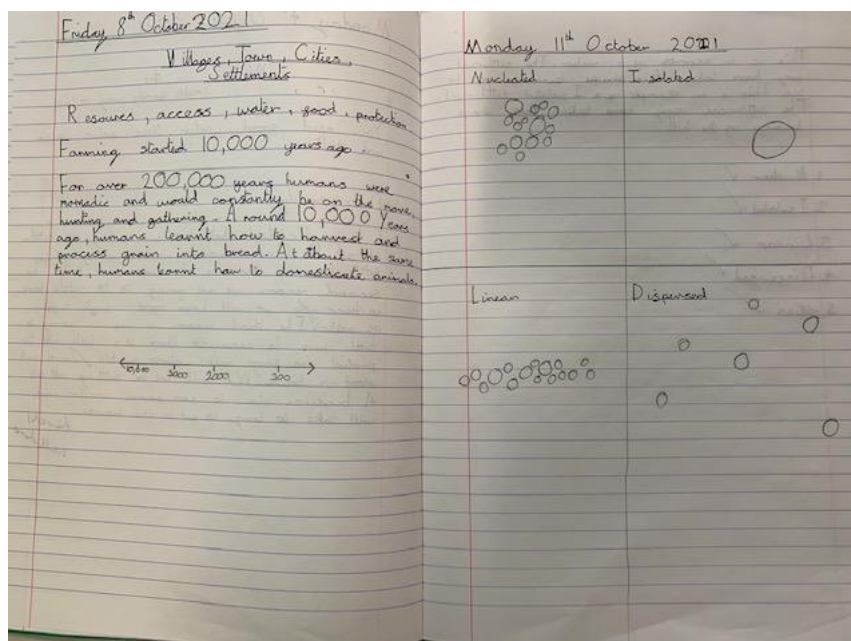 Friday 8th October 2021
Villages, Town, Cities,
Settlements
Resoures, access, water, food, protection
Farming started 10,000 years ago.
For over 200,000 years humans were
nomadic and would constantly be on the move,
hunting and gathering. Around 10,000 Years
ago, humans learnt how to harvest and
process grain into bread. At about the same
time, humans learnt how to domesticate animals.
10,000 5000 2000 300
Monday 11th October 2021
Nucleated Isolated
Linear Dispersed